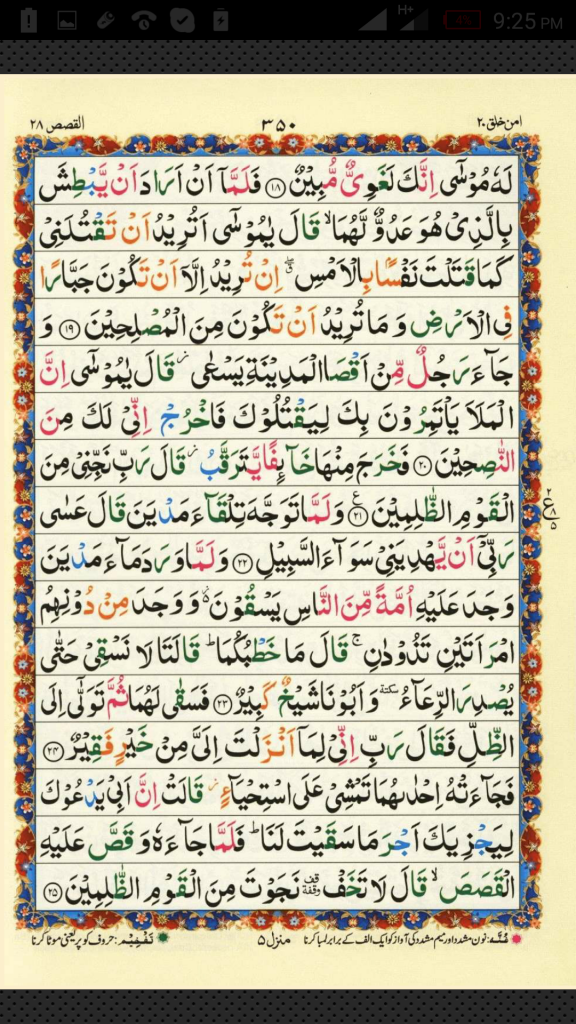 H+
4%
9:25 PM
امن خلق ٢٠
٣٥٠
القصص ٢٨
لَهٗ مُوْسٰۤى اِنَّكَ لَغَوِىٌّ مُّبِيْنٌ ﴿۱۸﴾ فَلَمَّاۤ اَنْ اَرَادَ اَنْ يَّبْطِشَ
بِالَّذِىْ هُوَ عَدُوٌّ لَّهُمَا ۙ قَالَ يٰمُوْسٰۤى اَتُرِيْدُ اَنْ تَقْتُلَنِىْ
كَمَا قَتَلْتَ نَفْسًۢا بِالْاَمْسِ ۖ ق اِنْ تُرِيْدُ اِلَّاۤ اَنْ تَكُوْنَ جَبَّارًا
فِى الْاَرْضِ وَ مَا تُرِيْدُ اَنْ تَكُوْنَ مِنَ الْمُصْلِحِيْنَ ﴿۱۹﴾ وَ
جَآءَ رَجُلٌ مِّنْ اَقْصَا الْمَدِيْنَةِ يَسْعٰى ز قَالَ يٰمُوْسٰۤى اِنَّ
الْمَلَاَ يَاْتَمِرُوْنَ بِكَ لِيَقْتُلُوْكَ فَاخْرُجْ اِنِّىْ لَكَ مِنَ
النّٰصِحِيْنَ ﴿۲۰﴾ فَخَرَجَ مِنْهَا خَآئِفًا يَّتَرَقَّبُ ز قَالَ رَبِّ نَجِّنِىْ مِنَ
الْقَوْمِ الظّٰلِمِيْنَ ﴿۲۱﴾ ع وَلَمَّا تَوَجَّهَ تِلْقَآءَ مَدْيَنَ قَالَ عَسٰى
رَبِّىْۤ اَنْ يَّهْدِيَنِىْ سَوَآءَ السَّبِيْلِ ﴿۲۲﴾ وَلَمَّا وَرَدَ مَآءَ مَدْيَنَ
وَجَدَ عَلَيْهِ اُمَّةً مِّنَ النَّاسِ يَسْقُوْنَ ۬ وَوَجَدَ مِنْ دُوْنِهِمُ
امْرَاَتَيْنِ تَذُوْدٰنِ ۚ قَالَ مَا خَطْبُكُمَا ؕ قَالَتَا لَا نَسْقِىْ حَتّٰى
يُصْدِرَ الرِّعَآءُ سكتة وَاَبُوْنَا شَيْخٌ كَبِيْرٌ ﴿۲۳﴾ فَسَقٰى لَهُمَا ثُمَّ تَوَلّٰۤى اِلَى
الظِّلِّ فَقَالَ رَبِّ اِنِّىْ لِمَاۤ اَنْزَلْتَ اِلَىَّ مِنْ خَيْرٍ فَقِيْرٌ ﴿۲۴﴾
فَجَآءَتْهُ اِحْدٰىهُمَا تَمْشِىْ عَلَى اسْتِحْيَآءٍ ز قَالَتْ اِنَّ اَبِىْ يَدْعُوْكَ
لِيَجْزِيَكَ اَجْرَ مَا سَقَيْتَ لَنَا ؕ فَلَمَّا جَآءَهٗ وَ قَصَّ عَلَيْهِ
الْقَصَصَ ۙ قَالَ لَا تَخَفْ قف وقفة نَجَوْتَ مِنَ الْقَوْمِ الظّٰلِمِيْنَ ﴿۲۵﴾
٢
ع ٨
٥
غُنَّہ: نون مشدد اور میم مشدد کی آواز کو ایک الف کے برابر لمبا کرنا
منزل ۵
تَفْخِيْم: حروف کو پُر یعنی موٹا کرنا